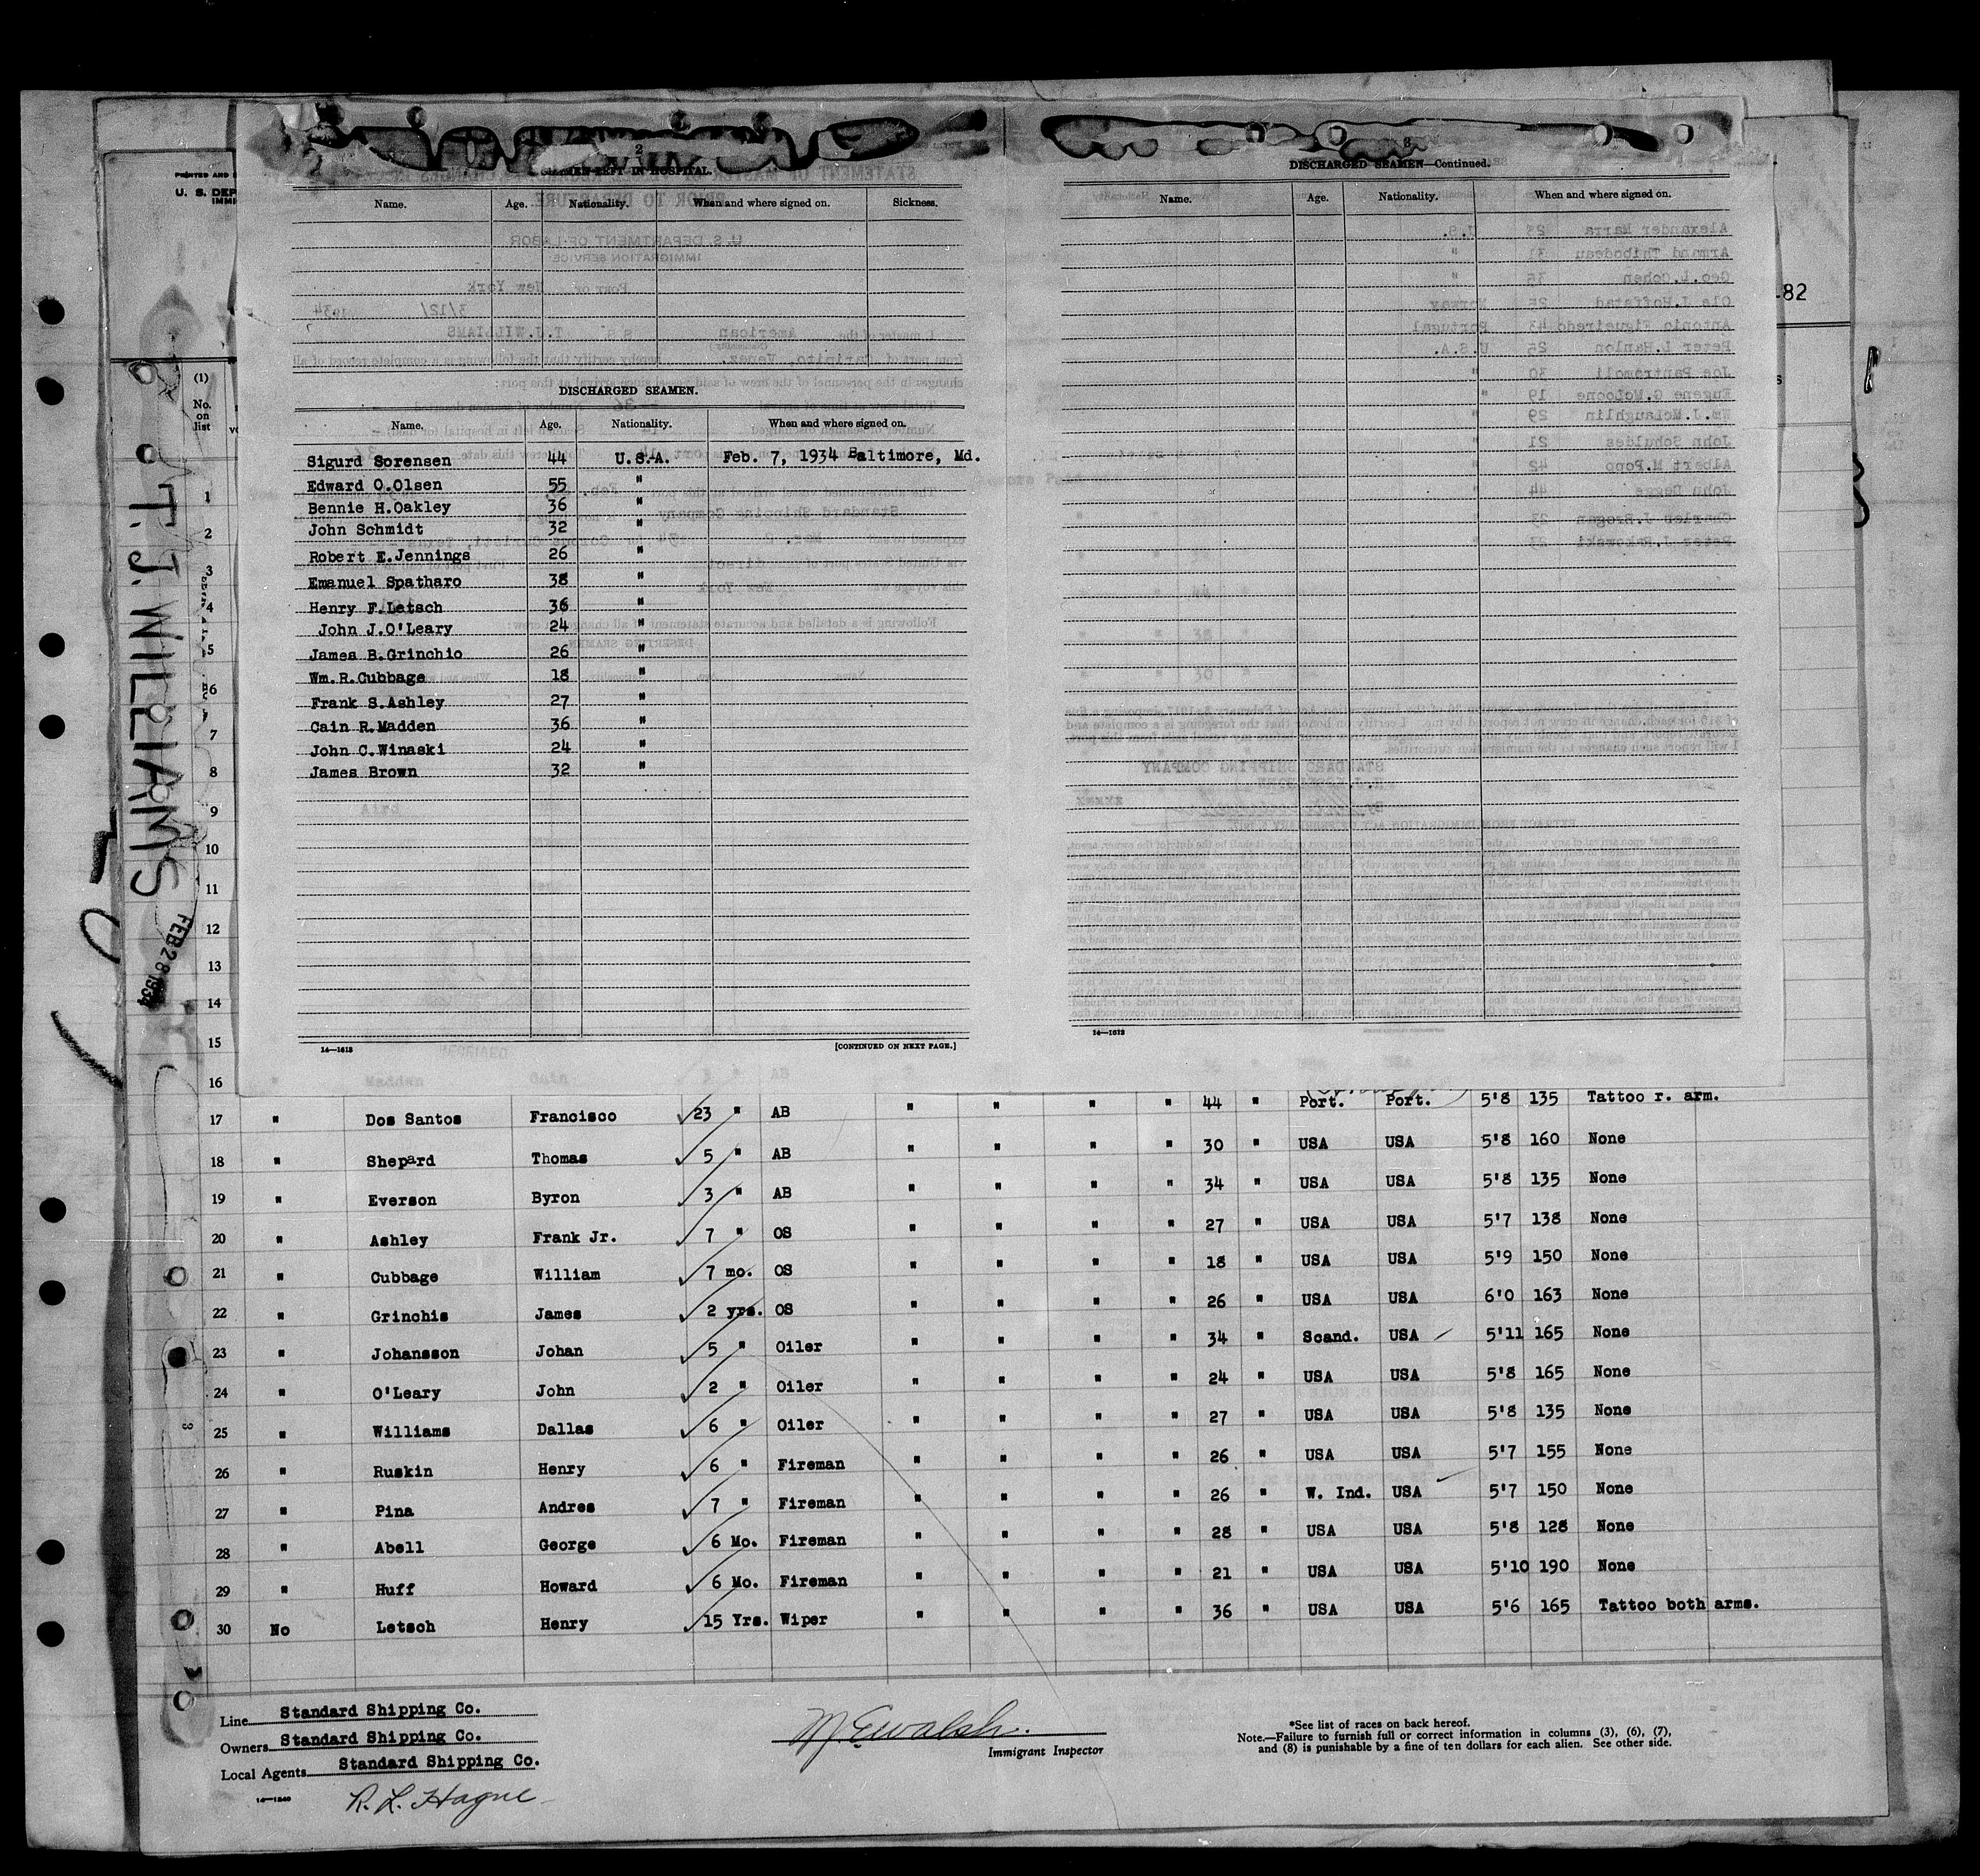 2
SEAMEN LEFT IN HOSPITAL.
Name. Age. Nationality. When and where signed on. Sickness.
DISCHARGED SEAMEN.
Name. Age. Nationality. When and where signed on.
Sigurd Sorensen 44 U.S.A. Feb. 7, 1934 Baltimore, Md.
Edward O.Olsen 55 "
Bennie H.Oakley 36 "
John Schmidt 32 "
Robert E.Jennings 26 "
Emanuel Spatharo 38 "
Henry F.Letsch 36 "
John J.O'Leary 24 "
James B.Grinchio 26 "
Wm.R.Cubbage 18 "
Frank S.Ashley 27 "
Cain R.Madden 36 "
John C.Winaski 24 "
James Brown 32 "
14—1613
[CONTINUED ON NEXT PAGE.]
3
DISCHARGED SEAMEN—Continued.
Name. Age. Nationality. When and where signed on.
14—1613
PRINTED AND
U. S. DEP
IMMI
-82
(1)
No.
on
list
T. J. WILLIAMS
FEB 28 1934
1
2
3
4
5
6
7
8
9
10
11
12
13
14
15
16 " Madden Cain AB
17 " Dos Santos Francisco 23 " AB " " " " 44 " Port. Port. 5'8 135 Tattoo r. arm.
18 " Shepard Thomas 5 " AB " " " " 30 " USA USA 5'8 160 None
19 " Everson Byron 3 " AB " " " " 34 " USA USA 5'8 135 None
20 " Ashley Frank Jr. 7 " OS " " " " 27 " USA USA 5'7 138 None
21 " Cubbage William 7 mo. OS " " " " 18 " USA USA 5'9 150 None
22 " Grinchis James 2 yrs. OS " " " " 26 " USA USA 6'0 163 None
23 " Johansson Johan 5 " Oiler " " " " 34 " Scand. USA 5'11 165 None
24 " O'Leary John 2 " Oiler " " " " 24 " USA USA 5'8 165 None
25 " Williams Dallas 6 " Oiler " " " " 27 " USA USA 5'8 135 None
26 " Ruskin Henry 6 " Fireman " " " " 26 " USA USA 5'7 155 None
27 " Pina Andres 7 " Fireman " " " " 26 " W. Ind. USA 5'7 150 None
28 " Abell George 6 Mo. Fireman " " " " 28 " USA USA 5'8 128 None
29 " Huff Howard 6 Mo. Fireman " " " " 21 " USA USA 5'10 190 None
30 No Letsch Henry 15 Yrs. Wiper " " " " 36 " USA USA 5'6 165 Tattoo both arms.
Line Standard Shipping Co.
Owners Standard Shipping Co.
Local Agents Standard Shipping Co.
R. L. Hague
M. E. Walsh
Immigrant Inspector
*See list of races on back hereof.
Note.—Failure to furnish full or correct information in columns (3), (6), (7),
and (8) is punishable by a fine of ten dollars for each alien. See other side.